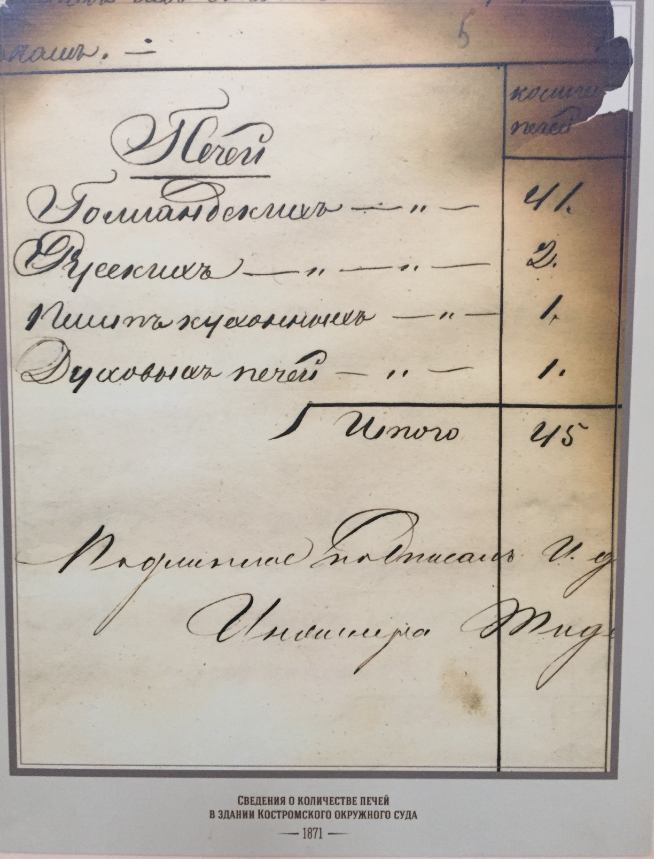 5
Печей
печей
Голландскихъ — „ — 41.
Русскихъ — „ — „ — 2.
Плитъ кухонныхъ — „ — 1.
Духовыхъ печей — „ — 1.
Итого 45
Подлинное подписалъ И. д
Инженера
Сведения о количестве печей
в здании Костромского окружного суда
— 1871 —